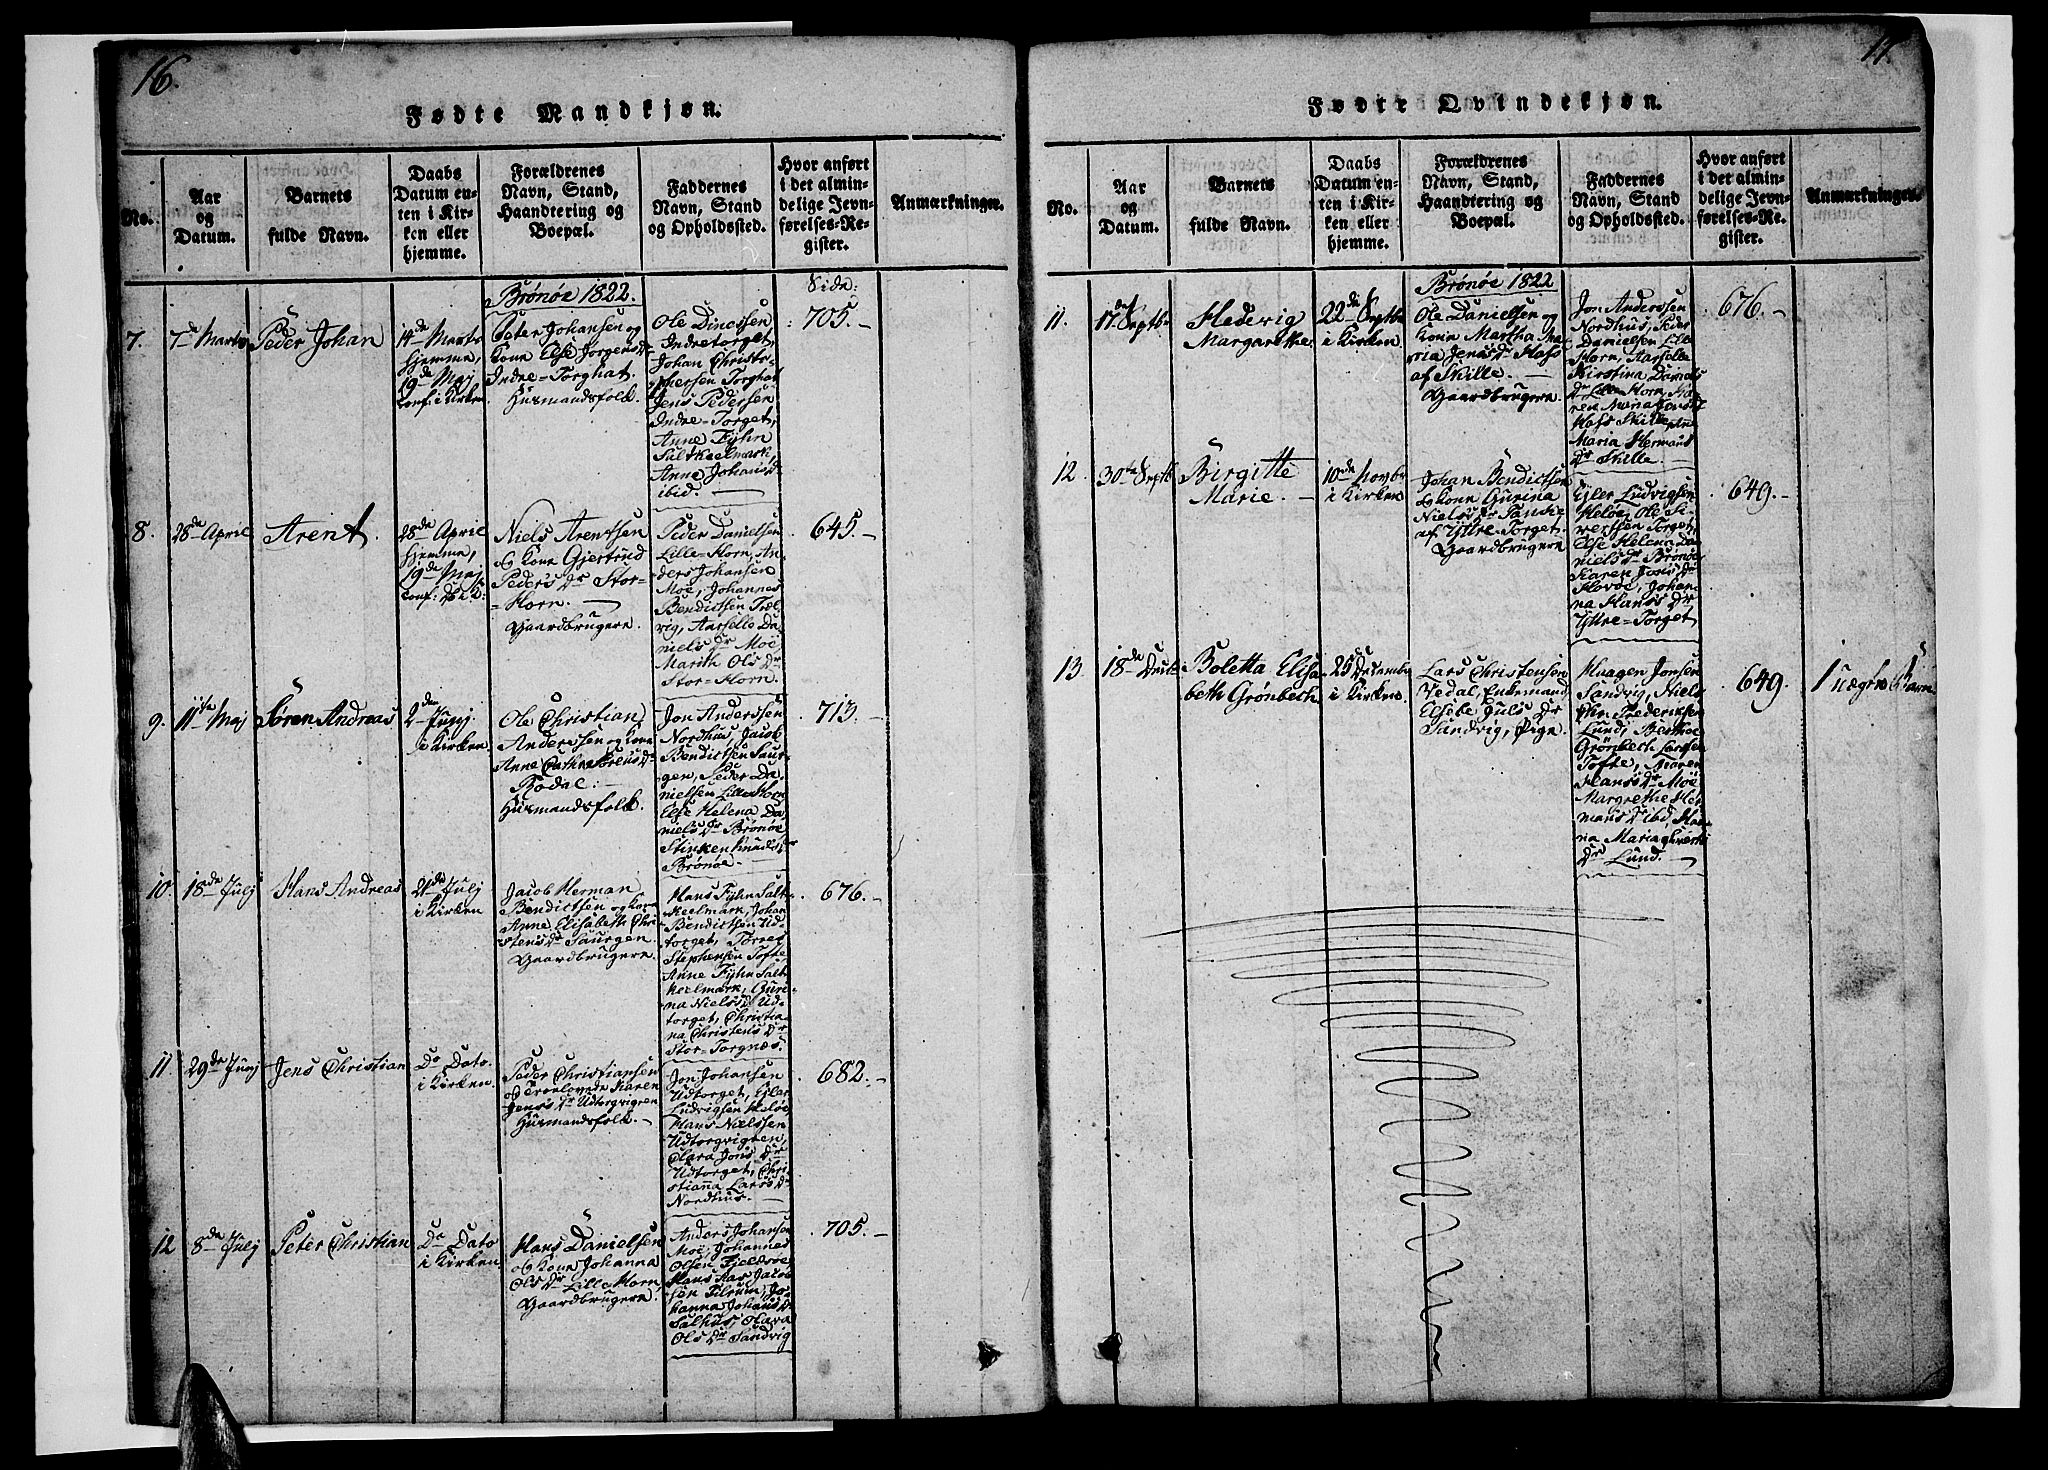 16.
Fødte Mandkjøn.
No.
Aar
og
Datum.
Barnets
fulde Navn.
Daabs
Datum en-
ten i Kir-
ken eller
hjemme.
Forældrenes
Navn, Stand,
Haandtering og
Boepæl.
Faddernes
Navn, Stand
og Opholdssted.
Hvor anført
i det almin-
delige Jevn-
førelses-Re-
gister.
Anmærkninger.
Brönöe 1822.
Side:
7.
7de Marts
Peder Johan
14de Marts
hjemme,
19de Maj
conf. i Kirken
Peter Johansen og
Kone Else Jörgens Dr
Indre-Torghat.
Huusmandsfolk.
Ole Dinessen
Indretorget,
Johan Christo-
phersen Torghat
Jens Pedersen
Indre-Torget,
Anne Fÿhn
Saltkeelmark,
Anne Johans D.
ibid.
705.
8.
28de April
Arent.
28de April
hjemme,
19de Maj
conf:
Niels Arentsen
og Kone Gjertrud
Peders Dr Stor-
-Horn.
Gaardbrugere.
Peder Danielsen
Lille-Horn, An-
ders Johansen
Moe, Johannes
Bendictsen Træl-
vig, Aarselle Da-
niels Dr Moe
Marith Ols Dr
Stor-Horn.
645.
9.
11te Maj
Sören Andreas
2den Junj.
i Kirken
Ole Christian
Anderssen og Kone
Anne Cathr. Sörens Dr
Rodal.
Huusmandsfolk.
Jon Anderssen
Nordhus, Jacob
Bendictsen Saur-
gen, Peder Da-
nielsen Lille Horn
Else Helena Da-
niels Dr Brönöe
Stinken Knuds Dr
Brönöe.
713.
10.
18de Julj
Hans Andreas
21de Julj
i Kirken
Jacob Herman
Bendictsen og Kone
Anne Elisabeth Chri-
stens Dr Saurgen.
Gaardbrugere.
Hans Fÿhn Salt-
keelmark, Johan
Bendictsen Ud-
torget, Torres
Stephensen Tofte,
Anne Fÿhn Salt-
keelmark, Guri-
na Niels D Ud-
torget, Christia-
na Christens Dr
Stor-Torgnæs.
676.
11
29de Junj
Jens Christian
Do Dato
i Kirken.
Peder Christiansen
og Troelovede Karen
Jens Dr Udtorgvigen
Huusmandsfolk.
Jon Johansen
Udtorget, Ejler
Ludvigsen Heløe,
Hans Nielssen
Udtorgvigten,
Olara Jons Dr
Udtorget, Chri-
stianna Lars Dr
Nordhus.
682.
12
8de Julj
Peter Christian
Do Dato
i Kirken.
Hans Danielsen
og Kone Johanna
Ols Dr Lille Horn
Gaardbrugere.
Anders Johansen
Moe, Johannes
Olsen Fieldsöe
Hans Has Jacob-
sen Tilrum, Jo-
hanna Johans Dr
Salhus, Olava
Ols Dr Sandvig
705.
17.
Fødte Qvindekjøn.
No.
Aar
og
Datum.
Barnets
fulde Navn.
Daabs
Datum en-
ten i Kir-
ken eller
hjemme.
Forældrenes
Navn, Stand,
Haandtering og
Boepæl.
Faddernes
Navn, Stand
og Opholdssted.
Hvor anført
i det almin-
delige Jevn-
førelses-Re-
gister.
Anmærkninger.
Brönöe 1822
11.
17de Septb.
Hedevig
Margarethe
22de Septbr
i Kirken
Ole Danielsen og
Kone Martha Ma-
ria Jens Dr Hass
af Skille.
Gaardbrugere.
Jon Anderssen
Nordhus, Peder
Danielsen Lille
Horn, Aarselle
Kirstina Daniels
Dr Lille Horn, Ka-
ren Anna Jens D
Hass Skille,
Maria Hermans
Dr Skille.
676.
12.
30te Septb
Birgitte
Marie.
10de Novbr
i Kirken
Johan Bendictsen
og Kone Gurina
Niels Dr Tandie
af Yttre-Torget.
Gaardbrugere
Ejler Ludvigsen
Heløe, Ole Si-
vertsen Torget,
Else Helena Da-
niels Dr Brönöe
Karen Jons Dr
Havöe, Johan-
na Hans Dr
Yttre-Torget
649.
13.
18de Decbr
Boletta Elisa-
beth Grönbech
25 Decembr
i Kirken.
Lars Christensen
Tedal, Enkemand
Elsebe Juls Dr
Sandvig, Pige.
Haagen Jonsen
Sandvig, Niels
Chr. Frederiksen
Lund, Berthe
Grönbech Larssen
Tofte, Maren
Hans Dr Moe
Margrethe Her-
mans Dr ibid, Han-
na Maria
Dr Lund.
649.
1 uægte Barn